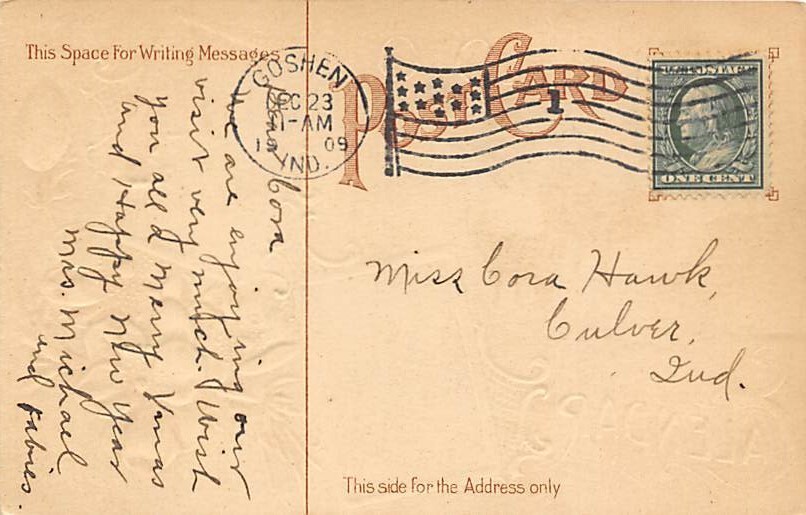 This Space For Writing Messages
POST CARD
GOSHEN
DEC 23
1-AM
1909
IND.
1
U.S. POSTAGE
ONE CENT
Dear Cora
we are enjoying our
visit very much. I wish
you all a Merry Xmas
and Happy New Year
Mrs. Michael
and babies.
Miss Cora Hawk,
Culver,
Ind.
This side for the Address only